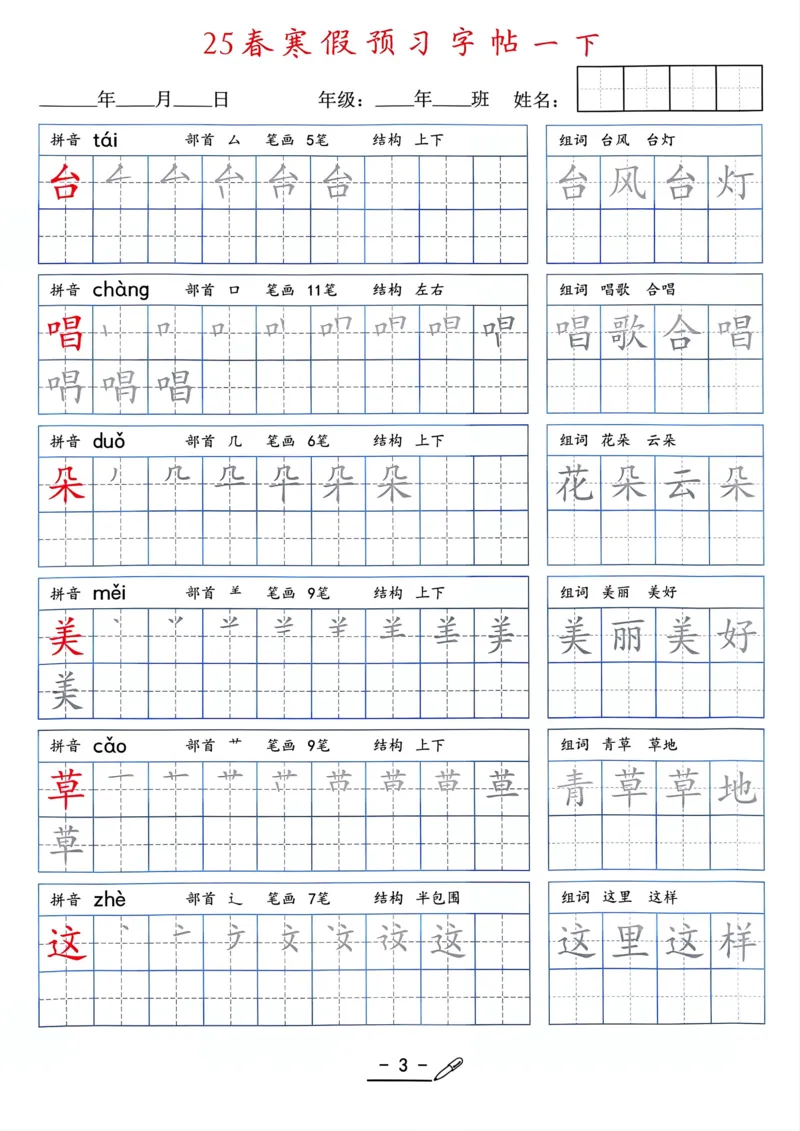 25春寒假预习字帖一下
____年____月____日 年级：____年____班 姓名：
拼音 tái 部首 厶 笔画 5笔 结构 上下
组词 台风 台灯
台
台风台灯
拼音 chàng 部首 口 笔画 11笔 结构 左右
组词 唱歌 合唱
唱
唱歌合唱
唱
拼音 duǒ 部首 几 笔画 6笔 结构 上下
组词 花朵 云朵
朵
花朵云朵
拼音 měi 部首 𦍌 笔画 9笔 结构 上下
组词 美丽 美好
美
美丽美好
美
拼音 cǎo 部首 艹 笔画 9笔 结构 上下
组词 青草 草地
草
青草草地
草
拼音 zhè 部首 辶 笔画 7笔 结构 半包围
组词 这里 这样
这
这里这样
- 3 -